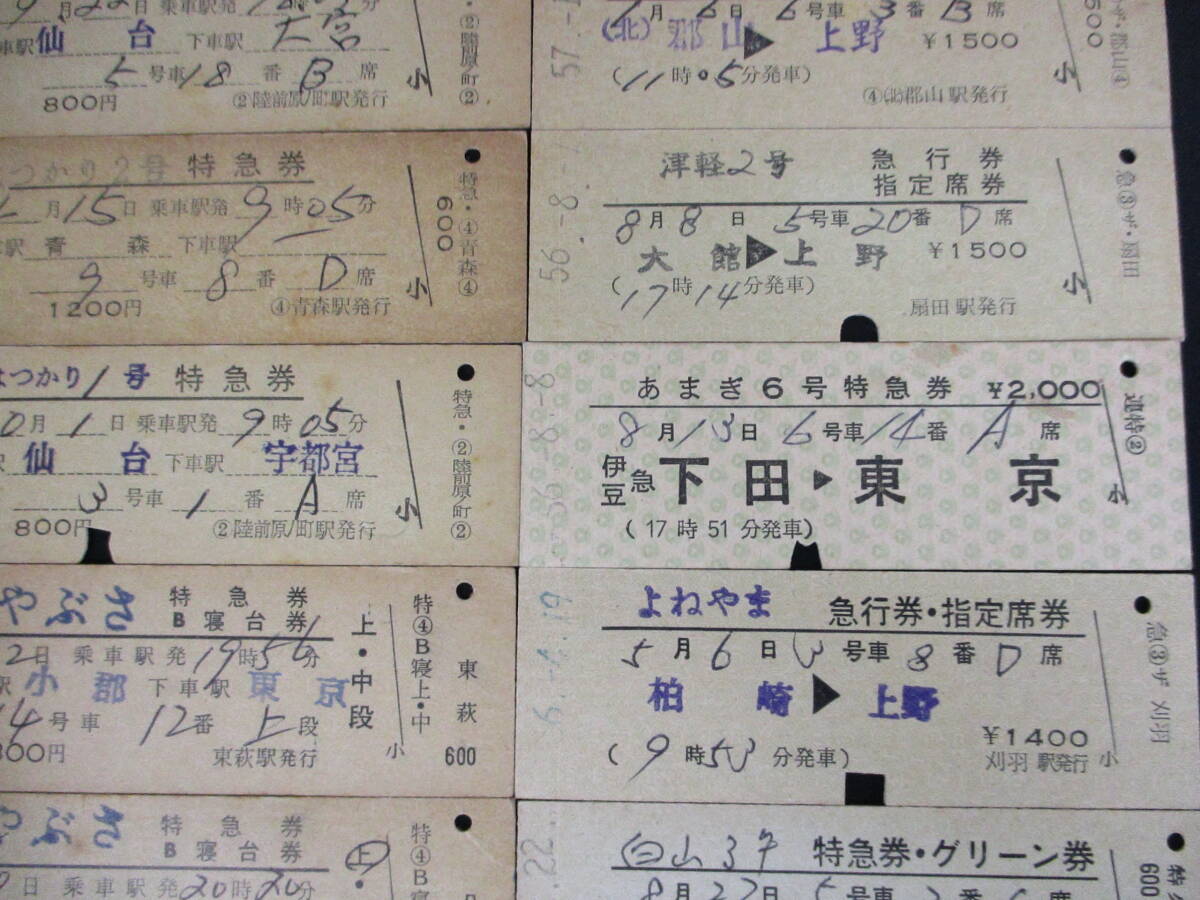 9月22日
仙台 下車駅 大宮
5号車18番B席
800円 ②陸前原ノ町駅発行
小
②陸前原ノ町②
つかり2号 特急券
月15日 乗車駅発 9時05分
青森 下車駅
9号車 8番 D席
1200円 ④青森駅発行
小
600
特急・④青森④
はつかり1号 特急券
月1日 乗車駅発 9時05分
仙台 下車駅 宇都宮
3号車 1番 A席
800円 ②陸前原ノ町駅発行
小
特急・②陸前原ノ町②
やぶさ 特急券
B寝台券
2日 乗車駅発 19時56分
小郡 下車駅 東京
4号車 12番 上段
800円 東萩駅発行
上・中段
小
特④B寝上・中
東萩
600
やぶさ 特急券
B寝台券
上
日 乗車駅発20時20分
特④B寝
月6日 6号車3番B席
(北)郡山▶上野 ¥1500
(11時05分発車)
④(北)郡山駅発行
小
57
津軽2号 急行券
指定席券
8月8日 5号車20番D席
大館▶上野 ¥1500
(17時14分発車)
扇田駅発行
小
急③ザ・扇田
56.-8.
あまぎ6号特急券 ¥2,000
8月13日 6号車14番A席
伊豆急下田▶東京
(17時51分発車)
小
遠特②
56.-8.-8
よねやま 急行券・指定席券
5月6日 3号車8番D席
柏崎▶上野
¥1400
(9時53分発車) 刈羽駅発行
小
急③ザ 刈羽
白山3号 特急券・グリーン券
8月22日 5号車
600
.22